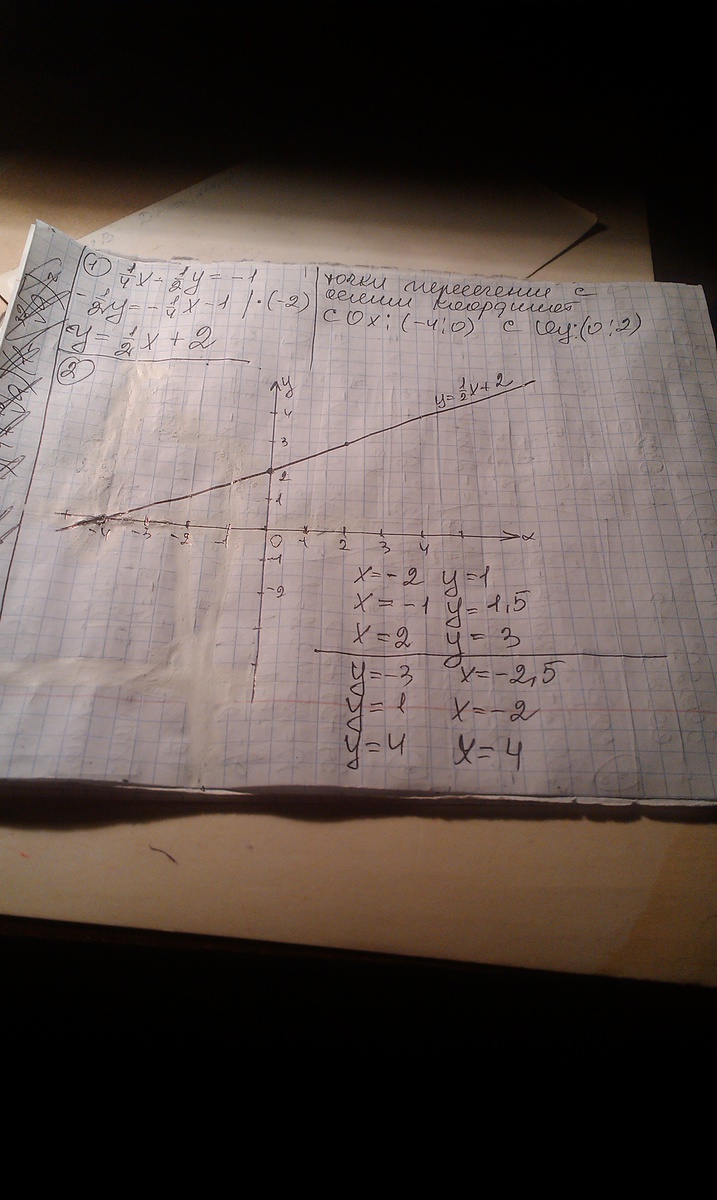 ① 1/4 x - 1/2 y = -1
- 1/2 y = - 1/4 x - 1 | · (-2)
y = 1/2 x + 2
точки пересечения с
осями координат
с Ox: (-4; 0) с Oy: (0; 2)
②
y
y = 1/2 x + 2
4
3
2
1
-4 -3 -2 -1 0 1 2 3 4 x
-1
-2
x = -2 y = 1
x = -1 y = 1,5
x = 2 y = 3
y = -3 x = -2,5
y = 1 x = -2
y = 4 x = 4